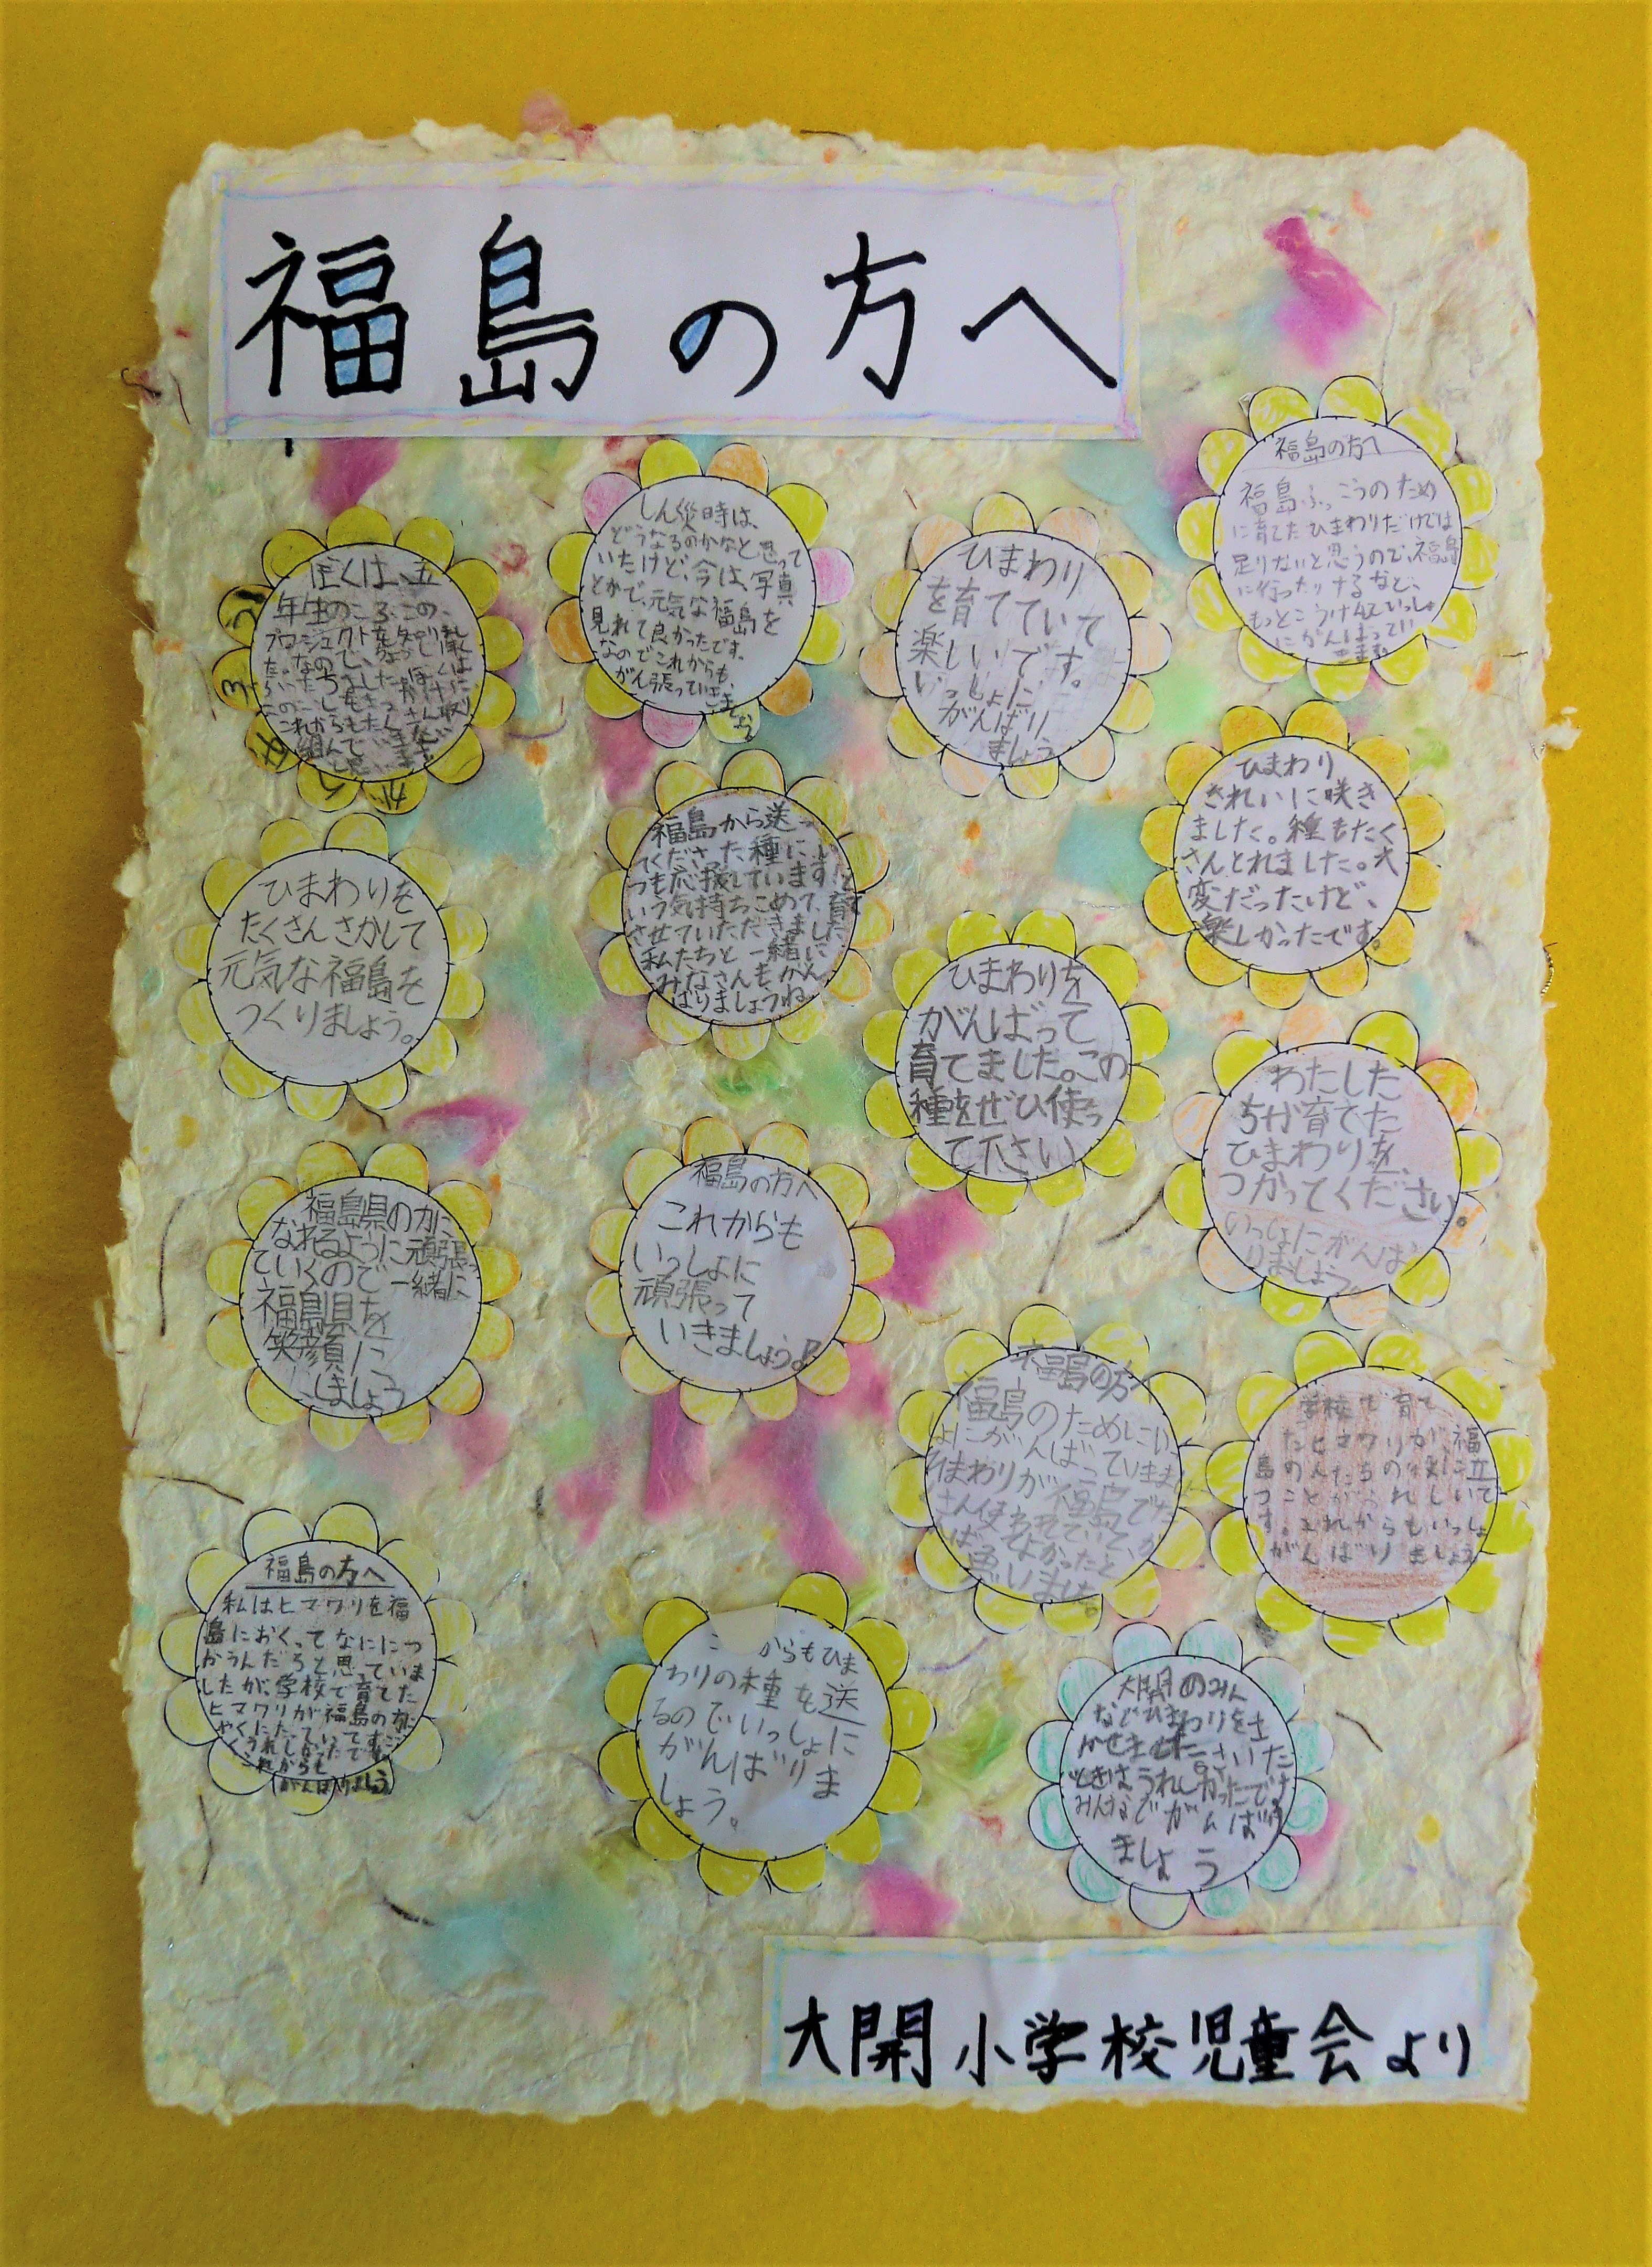 福島の方へ
しん災時は、
どうなるのかなと思って
いたけど、今は、写真
とかで、元気な福島を
見れて良かったです。
なのでこれからも、
がん張っていきましょう。
ひまわり
を育てていて
楽しいです。
いっしょに
がんばり
ましょう
福島の方へ
福島ふっこうのため
に育てたひまわりだけでは
足りないと思うので、福島
に行ったりするなど、
もっとこうけんしていっしょ
にがんばってい
きます。
ぼくは、五
年生のころ、この、
プロジェクトを知り
これからも
組んで
福島から送っ
てくださった種に、い
つも応援しています!と
いう気持ちこめて、育て
させていただきました
私たちと一緒に
みなさんもがん
ばりましょうね
ひまわり
きれいに咲き
ました。種もたく
さんとれました。大
変だったけど、
楽しかったです。
ひまわりを
たくさんさかして
元気な福島を
つくりましょう。
ひまわりを
がんばって
育てました。この
種をぜひ使っ
て下さい
わたした
ちが育てた
ひまわりを、
つかってください。
いっしょにがんば
りましょう。
福島県の力に
なれるように頑張っ
ていくので一緒に
福島県を
笑顔に
しましょう
福島の方へ
これからも
いっしょに
頑張って
いきましょう!
福島の方へ
福島のためにいっ
しょにがんばっていきましょ
ひまわりが福島でた
さん使われていて、が
んばってよかったと
思いました。
学校で育て
たヒマワリが、福
島の人たちの役に立
つことがうれしいで
す。これからもいっしょ
がんばりましょう
福島の方へ
私はヒマワリを福
島におくってなににつ
かうんだろと思っていま
したが、学校で育てた
ヒマワリが福島の方に
やくにたっていってすご
くうれしかったです。
これからも
がんばりましょう
からもひま
わりの種を送
るのでいっしょに
がんばりま
しょう。
大開のみん
なでひまわりをさ
かせました。さいた
ときはうれしかったです
みんなでがんばり
ましょう
大開小学校児童会より